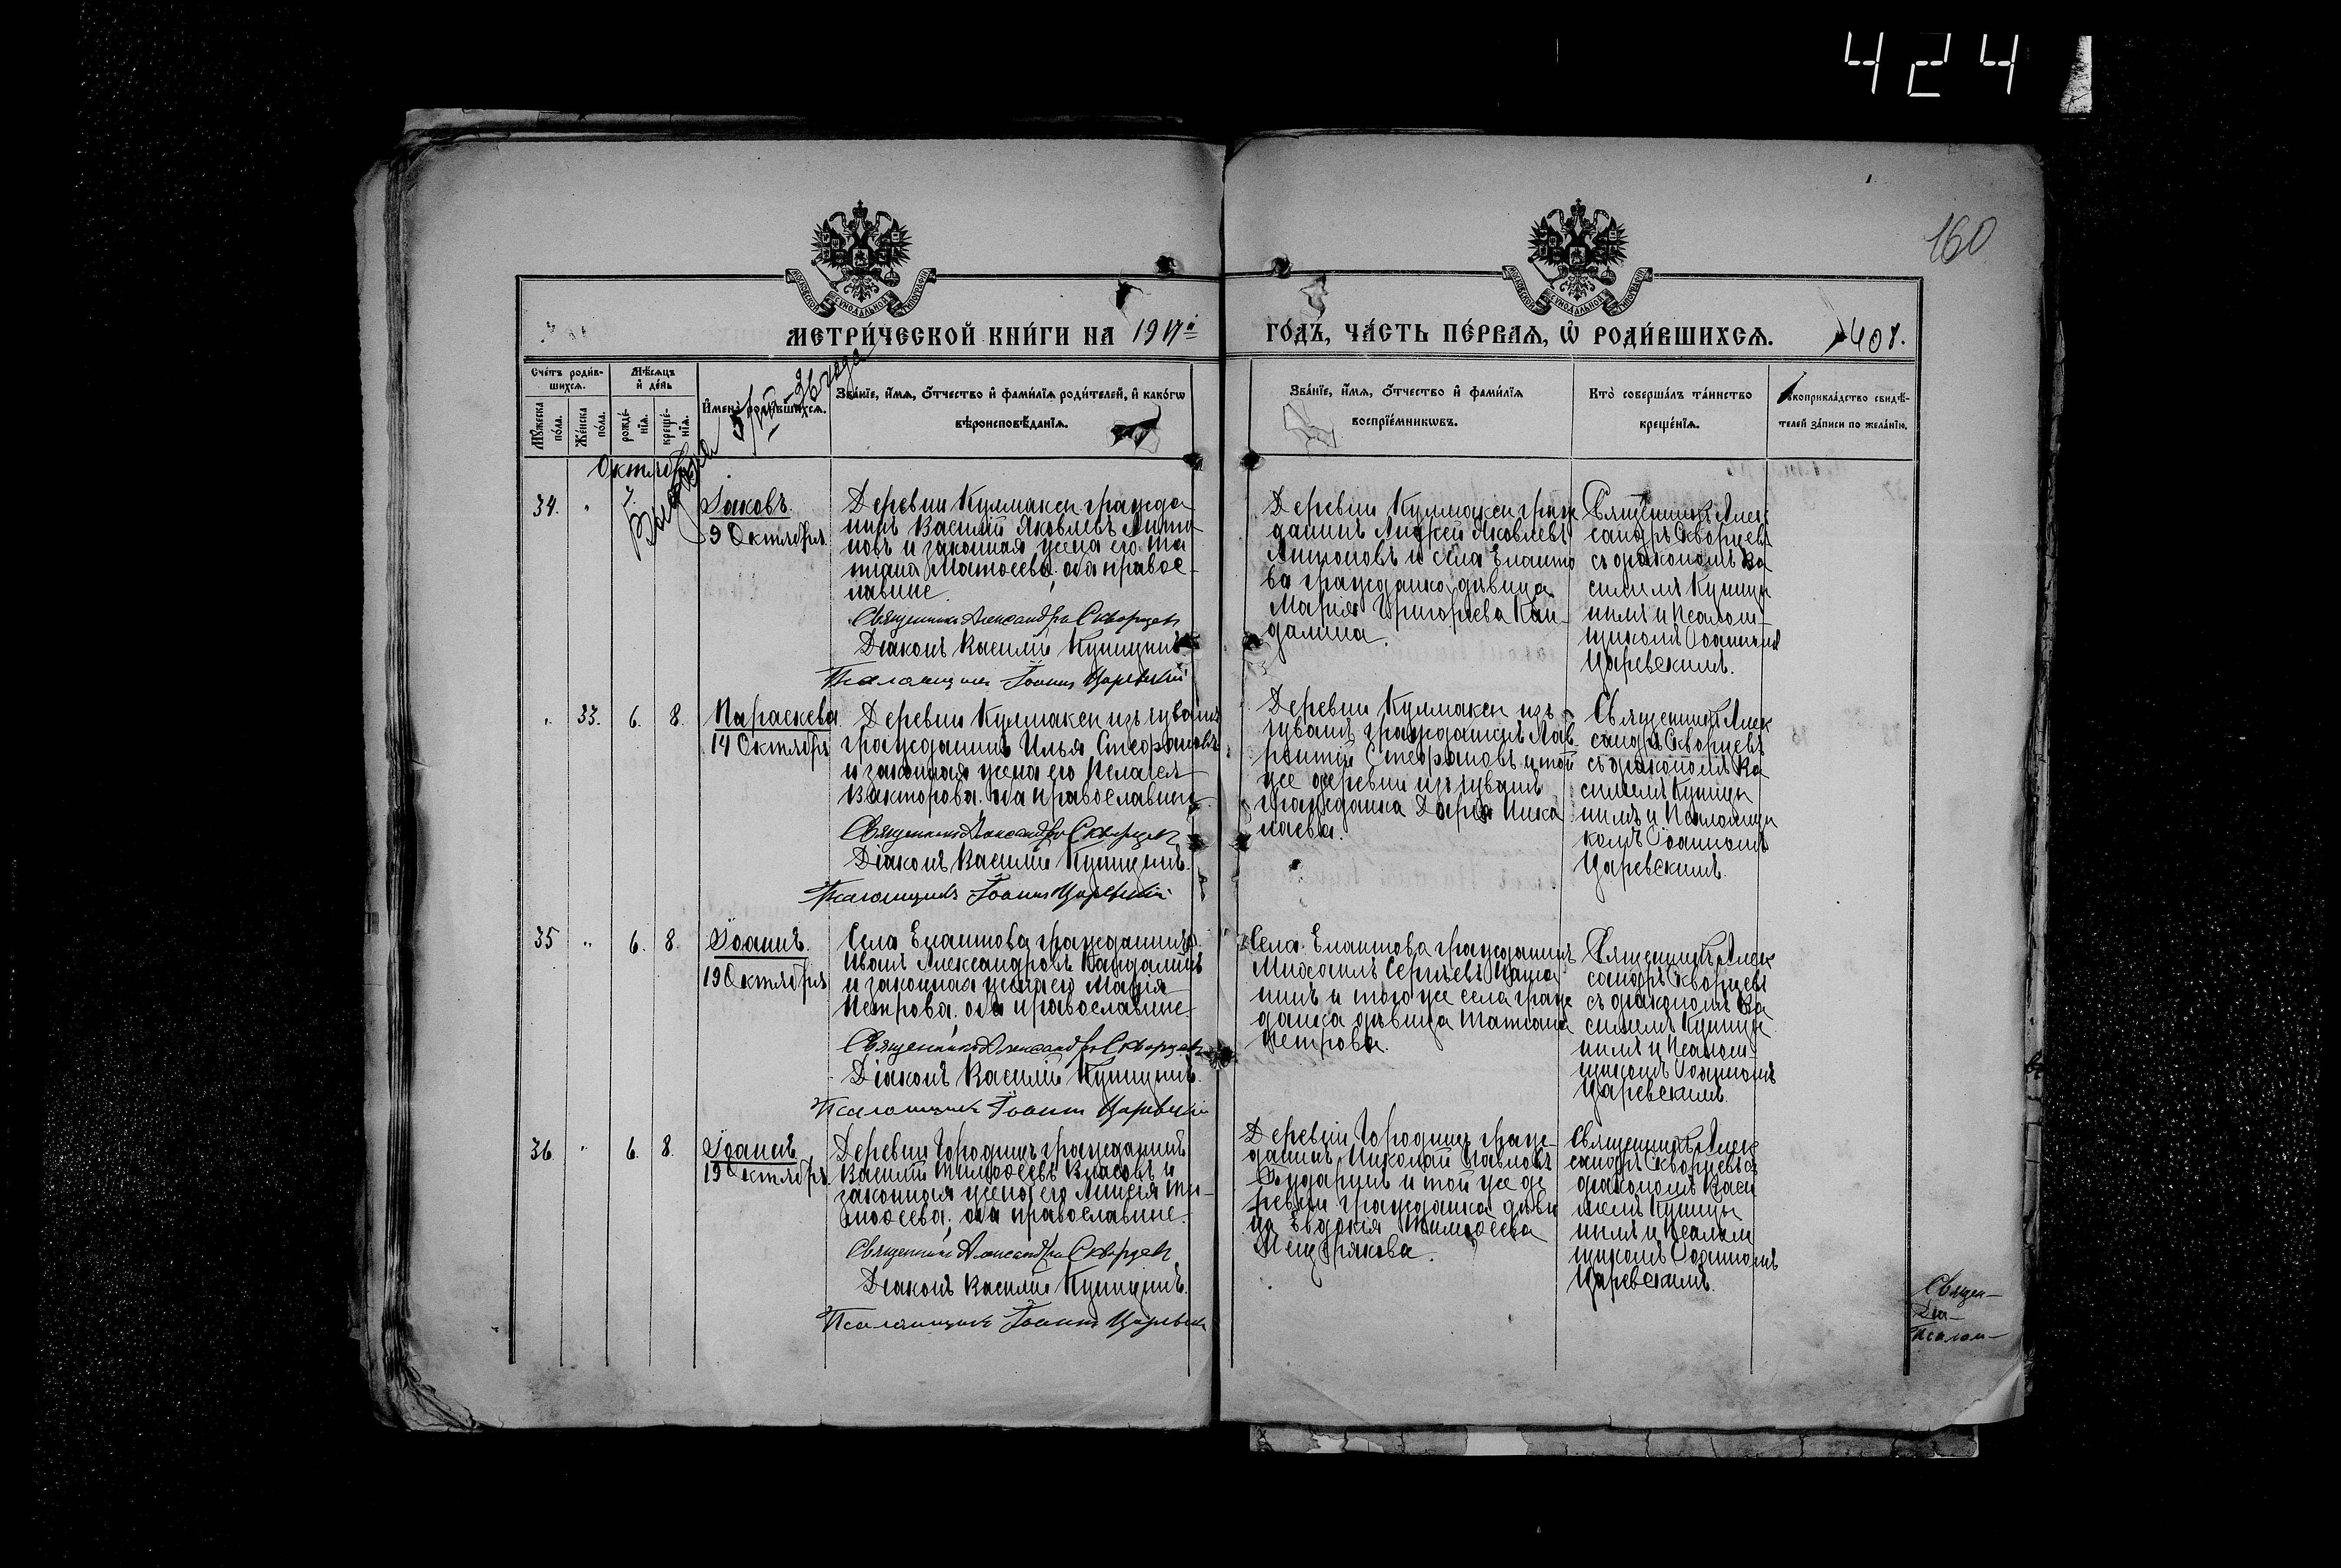 424
160
МЕТРИ́ЧЕСКОЙ КНИ́ГИ НА 1917й
ГО́ДЪ, ЧА́СТЬ ПЕ́РВАЯ, Ѡ҆ РОДИ́ВШИХСЯ. 408.
Сче́тъ роди́в-
шихся.
Мѣ́сяцъ
и҆ де́нь
Мꙋ́жеска
по́ла.
Же́нска
по́ла.
рожде́-
нїѧ.
креще́-
нїѧ.
И҆мена̀ роди́вшихся.
Зва́нїе, и҆́мѧ, ѻ҆́тчество и҆ фами́лїѧ роди́телей, и҆ како́гѡ
вѣроисповѣ́данїѧ.
Зва́нїе, и҆́мѧ, ѻ҆́тчество и҆ фами́лїѧ
воспрїе́мникѡвъ.
Кто̀ соверша́лъ та́инство
креще́нїѧ.
рꙋкоприкла́дство свидѣ́-
телей за́писи по жела́нїю.
Октября
34. " 7. Іаковъ.
9 Октября
Деревни Кулмаксы гражда
нинъ Василій Яковлевъ Анто
новъ и законная жена его Та
тіана Матѳеева; оба правос-
лавные.
Священникъ Александръ Скворцевъ
Діаконъ Василій Куницынъ
Псаломщикъ Іоаннъ Царевскій
Деревни Кулмаксы граж
данинъ Андрей Яковлевъ
Антоновъ и села Елашто
ва гражданка дѣвица
Марія Григорьева Кан-
далина.
Священникъ Алек
сандръ Скворцевъ
съ діакономъ Ва
силіемъ Куницы
нымъ и Псалом-
щикомъ Іоанномъ
Царевскимъ.
" 33. 6. 8. Параскева.
14 Октября
Деревни Кулмаксы изъ чувашъ
гражданинъ Илья Стефановъ
и законная жена его Пелагея
Викторова. оба православные.
Священникъ Александръ Скворцевъ
Діаконъ Василій Куницынъ.
Псаломщикъ Іоаннъ Царевскій
Деревни Кулмаксы изъ
чувашъ гражданинъ Лав
рентій Стефановъ и той
же деревни изъ чувашъ
гражданка Дарія Нико
лаева.
Священникъ Алек
сандръ Скворцевъ
съ діакономъ Ва
силіемъ Куницы
нымъ и Псаломщи
комъ Іоанномъ
Царевскимъ.
35 " 6. 8. Іоаннъ.
19 Октября
Села Елаштова гражданинъ
Иванъ Александровъ Кандалинъ
и законная жена его Марія
Петрова. оба православные
Священникъ Александръ Скворцевъ
Діаконъ Василій Куницынъ.
Псаломщикъ Іоаннъ Царевскій
Села Елаштова гражданинъ
Михаилъ Сергѣевъ
нинъ и того же села граж
данка дѣвица Татіана
Петрова.
Священникъ Алек
сандръ Скворцевъ
съ діакономъ Ва
силіемъ Куницы
нымъ и Псалом-
щикомъ Іоанномъ
Царевскимъ.
36 " 6. 8. Іоаннъ
19 Октября.
Деревни Городищъ гражданинъ
Василій Тимоѳеевъ Власовъ и
законная жена его Анисія Ти-
моѳеева; оба православные.
Священникъ Александръ Скворцевъ
Діаконъ Василій Куницынъ.
Псаломщикъ Іоаннъ Царевскій
Деревни Городищъ граж-
данинъ Николай Павловъ
и той же де
ревни гражданка дѣви
ца Евдокія Тимоѳеева
Мещерякова.
Священникъ Алек
сандръ Скворцевъ съ
діакономъ Васи
ліемъ Куницы
нымъ и Псалом
щикомъ Іоанномъ
Царевскимъ.
Священ-
Діа-
Псалом-